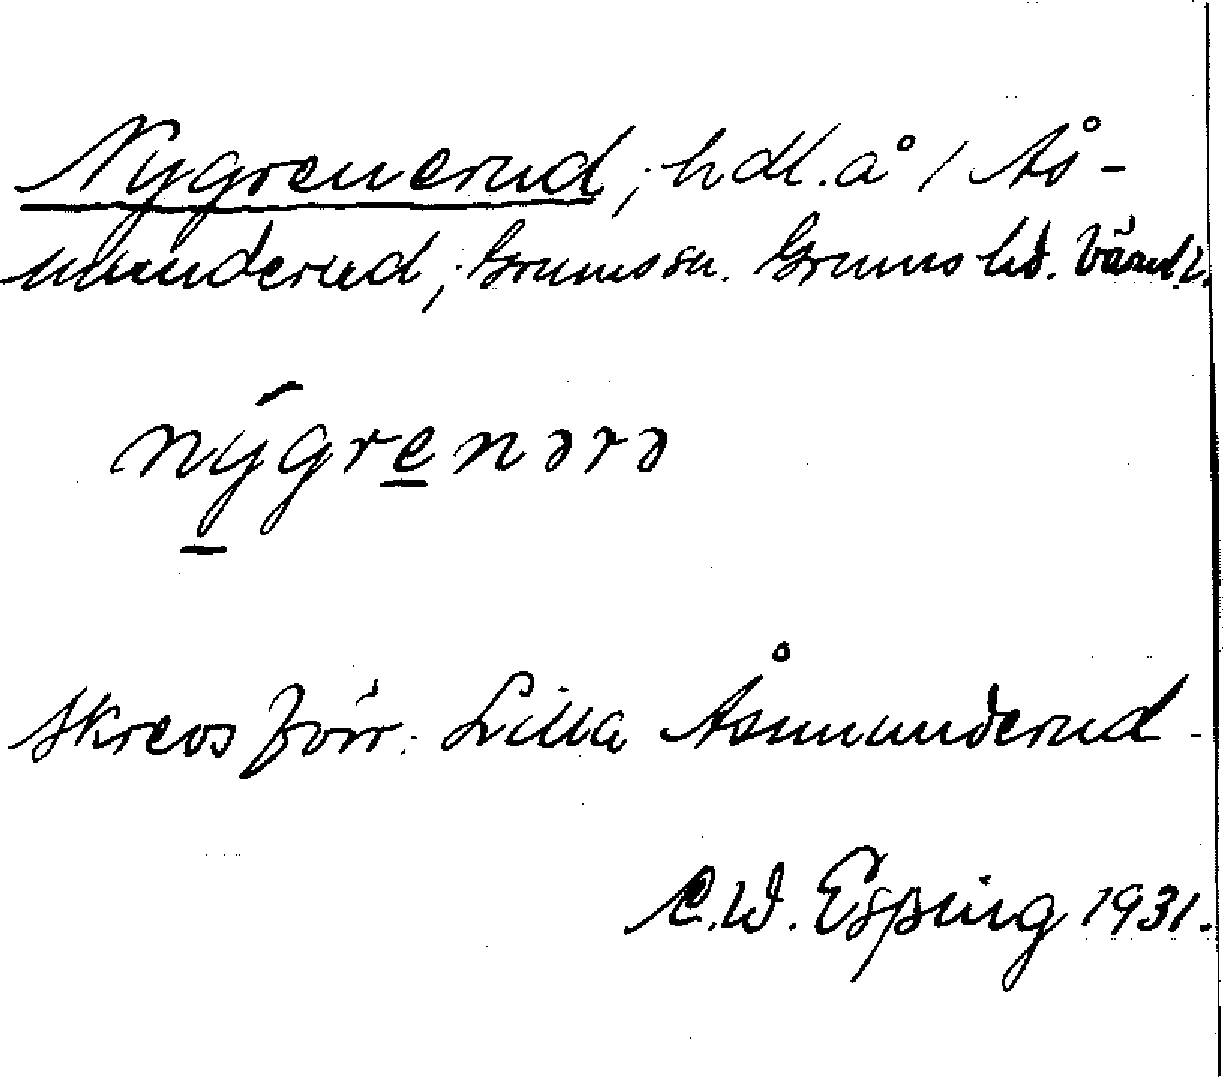 Nygrenerud, hdl. å 1 Ås-
munderud, Grums sn. Grums hd. Värml.
nýgrenərə
Skrevs förr: Lilla Åsmunderud.
C.W. Esping 1931.